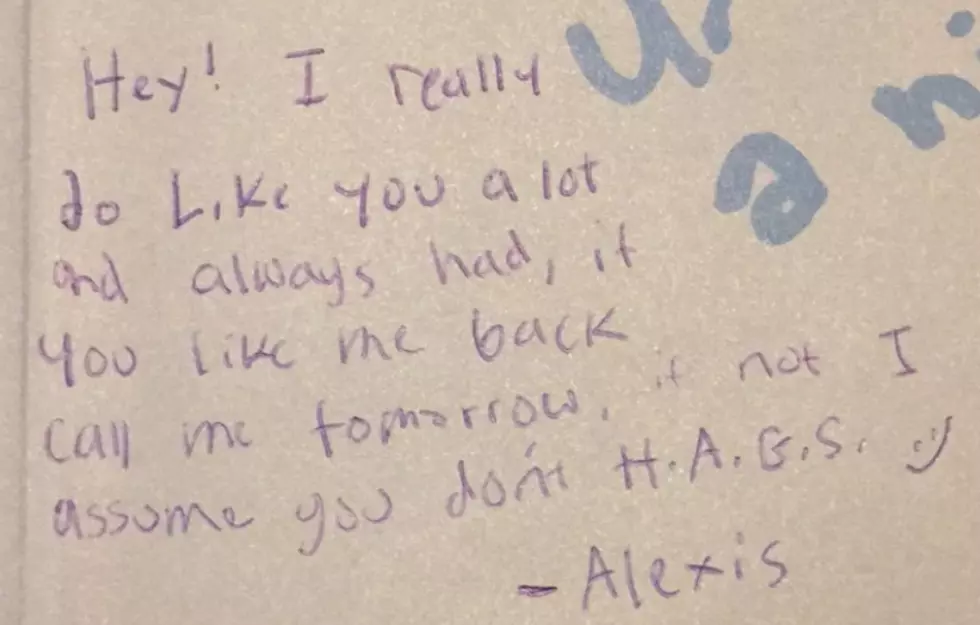 Hey! I really
do Like you a lot
and always had, if
you like me back
call me tomorrow, if not I
assume you don't H.A.G.S. :)
- Alexis